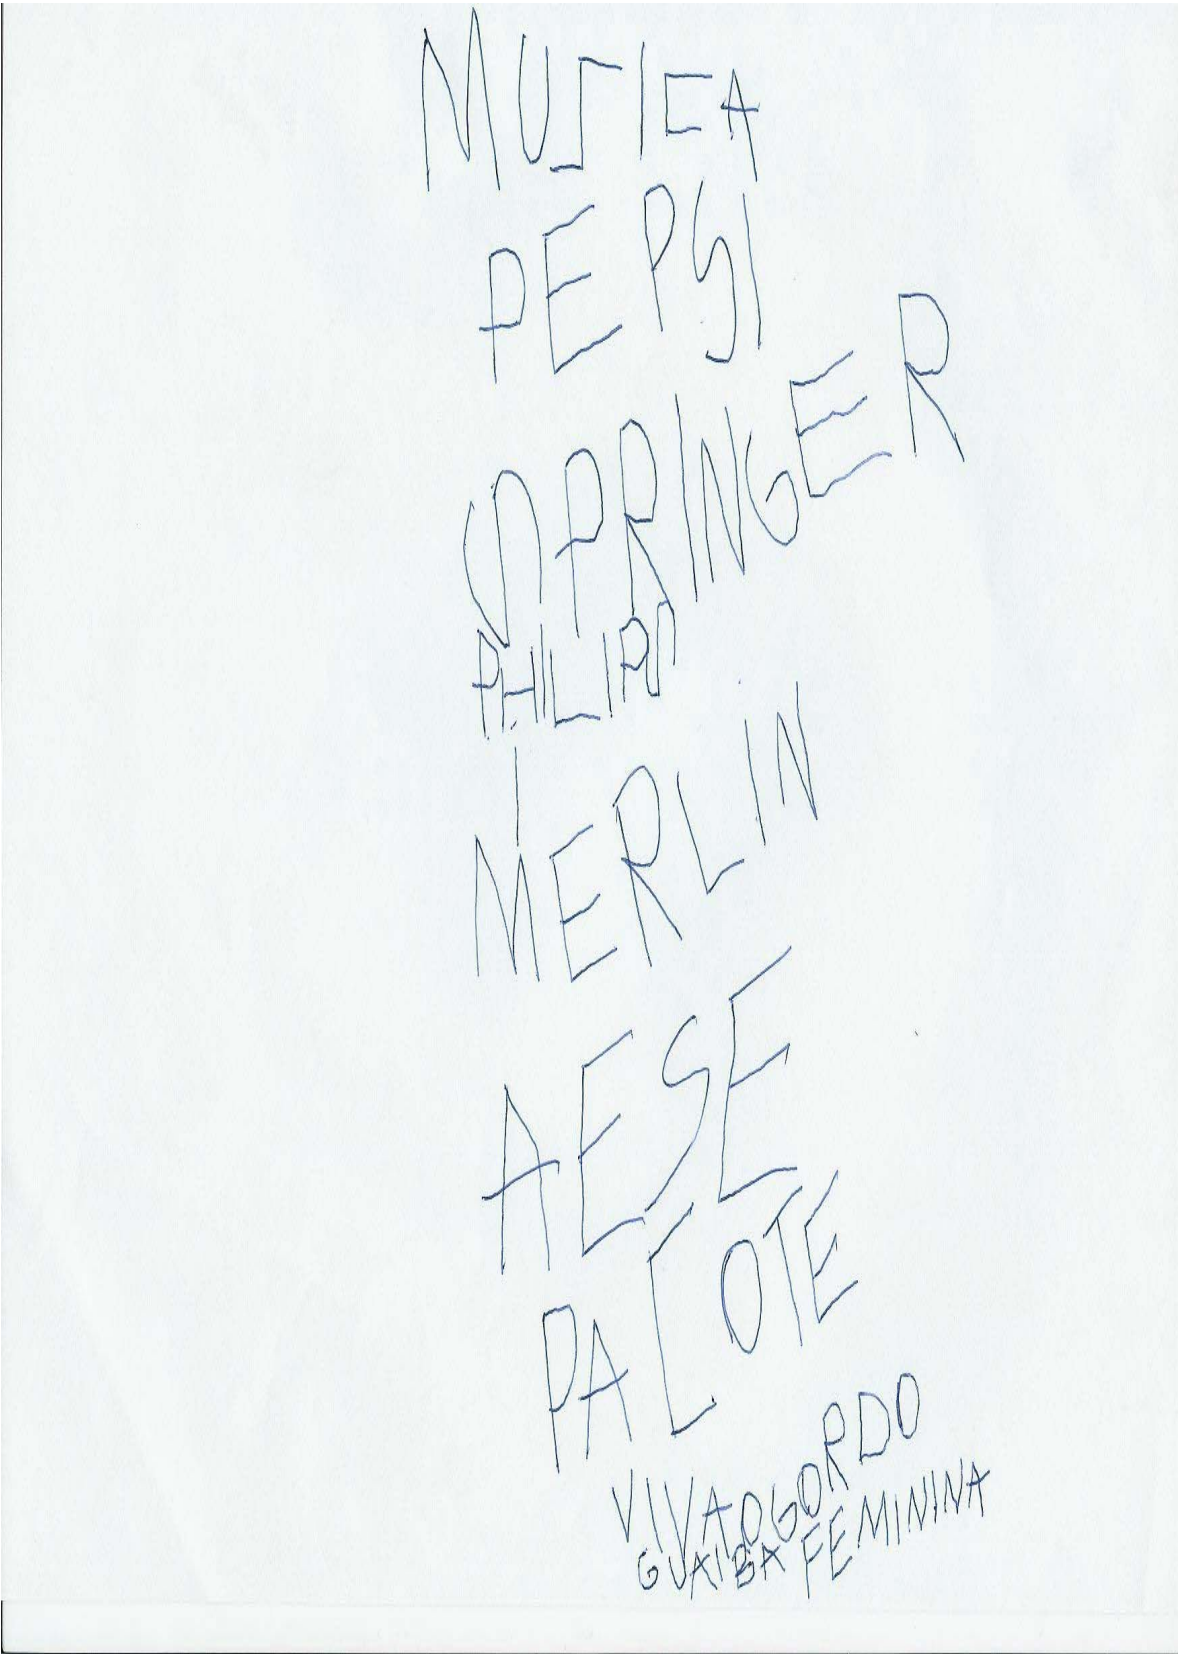 MUSICA
PEPSI
SPRINGER
PHILIPS
MERLIN
AESE
PACOTE
VIVAOGORDO
GUAIBA FEMININA